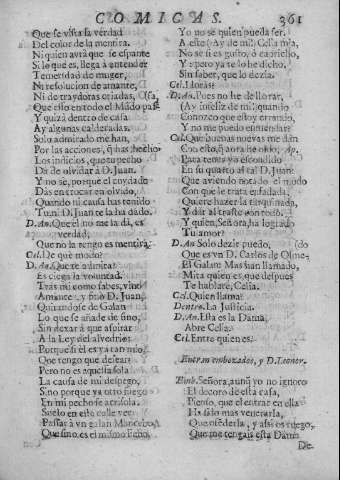 COMICAS. 361
Que se vista la verdad
Del color de la mentira.
Ni quien avrà que se espante
Si lo que es, llega à entender
Temeridad de muger,
Ni resolucion de amante,
Ni de traydoras criadas,
Que esso en todo el Mūdo passa
Y quizà dentro de casa
Ay algunas calderadas.
Solo admirado me han,
Por las acciones, q̃ has hecho
Los indicios, que tu pecho
Dà de olvidar à D. Juan.
Y no sè, porque el cuydado
Das en trocar en olvido,
Quando causa has tenido
Tu, ni D. Juan te la ha dado.
D. An. Que èl no me la dà, es
verdad,
Que no la tengo es mentira.
Cel. De què modo?
D. An. Que te admira?
Es ciega la voluntad.
Tras mi como sabes, vino
Amante, y fino D. Juan,
Quitandose de Galan
Lo que se añade de fino,
Sin dexar à que aspirar
A la Ley del alvedrio:
Porque si èl es ya tan mio,
Que tengo que desear?
Pero no es aquessa sola
La causa de mi despego,
Sino porque ya otro fuego
En mi pecho se acrisola.
Suelo en esta calle ver
Passar à vn galan Mancebo,
Que sino es el mismo Febo,
Yo no sè quien pueda ser.
A este (Ay de mi!) Celia mia,
No sè si es gusto, ò capricho,
Y: pero ya te lo he dicho,
Sin saber, que lo dezia.
Cel. Lloras?
D. An. Pues no he de llorar,
(Ay infeliz de mi!) quando
Conozco que estoy errando,
Y no me puedo enmendar?
Cel. Que buenas nuevas me dàn
Con esto, q̃ aora he oìdo, Ap.
Para tener yo escondido
En su quarto al tal D. Juan.
Que aviendo notado el modo
Con que le trata enfadada,
Quiere hazer la tarquinada,
Y dàr al traste con todo.
Y quien, Señora, ha logrado
Tu amor?
D. An Solo dezir puedo, (do
Que es vn D. Carlos de Olme-
El Galan. Mas han llamado,
Mira quien es, que despues
Te hablarè, Celia.
Cel. Quien llama?
Dentro. La Justicia.
D. An. Esta es la Dama,
Abre Celia.
Cel. Entre quien es.
Entran embozados, y D. Leonor.
Emb. Señora, aunq̃ yo no ignoro
El decoro de esta casa,
Pienso, que el entrar en ella
Ha sido mas venerarla,
Que ofenderla, y assi os ruego,
Que me tengais esta Dama
De-